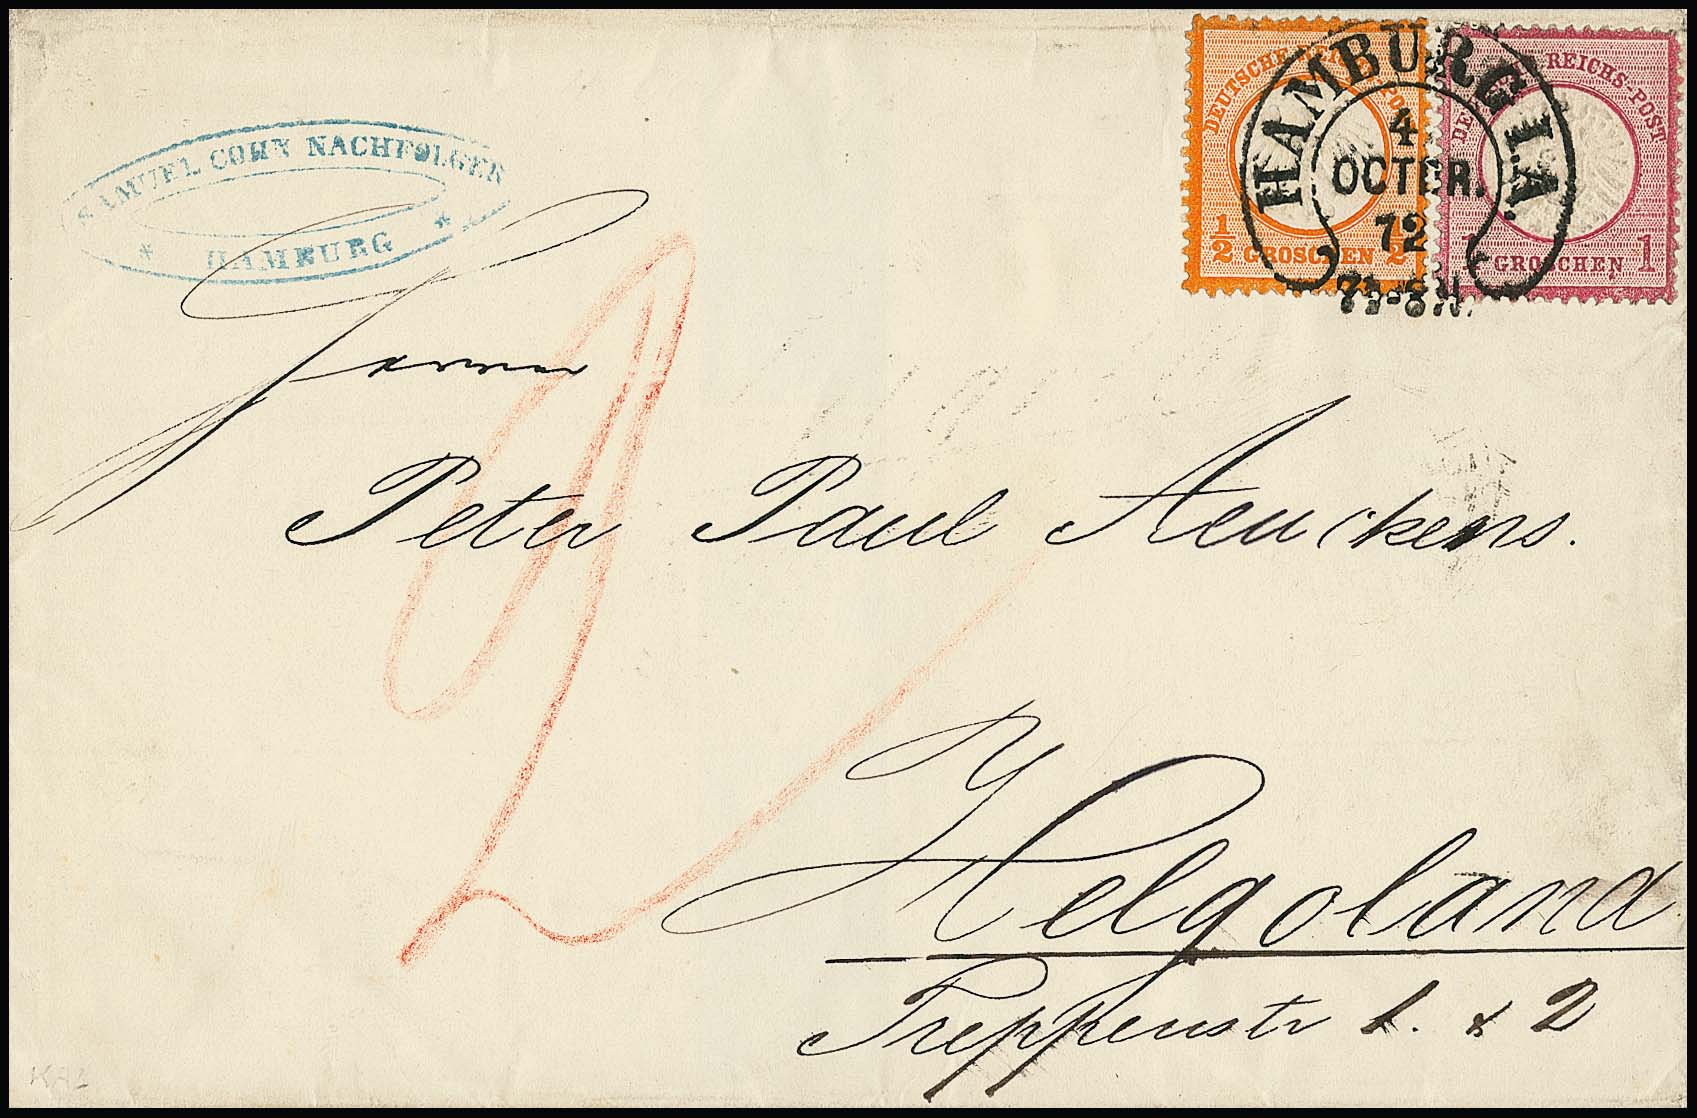 SAMUEL COHN NACHFOLGER
* HAMBURG *
DEUTSCHE REICHS-POST
½ GROSCHEN ½
REICHS-POST
1 GROSCHEN 1
HAMBURG I.A.
4
OCTBR.
72
7½-8N.
2
Herrn
Peter Paul Aeuckens.
Helgoland
Treppenstr 1. & 2